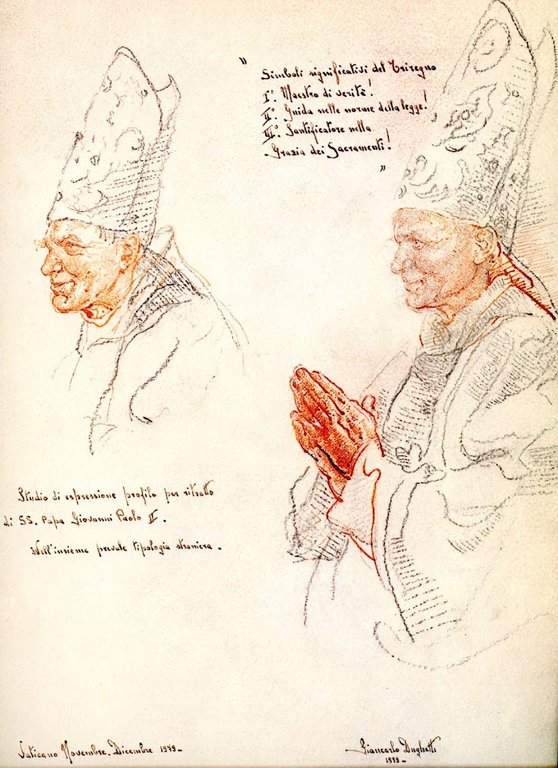 "
Simboli significativi del Triregno
I° Maestro di verità!
II° Guida nelle norme della legge!
III° Santificatore nella
Grazia dei Sacramenti!
"
Studio di espressione profilo per ritratto
di SS. Papa Giovanni Paolo II.
Nell'insieme prevale tipologia straniera.
Vaticano Novembre. Dicembre 1979-
Giancarlo
1979-